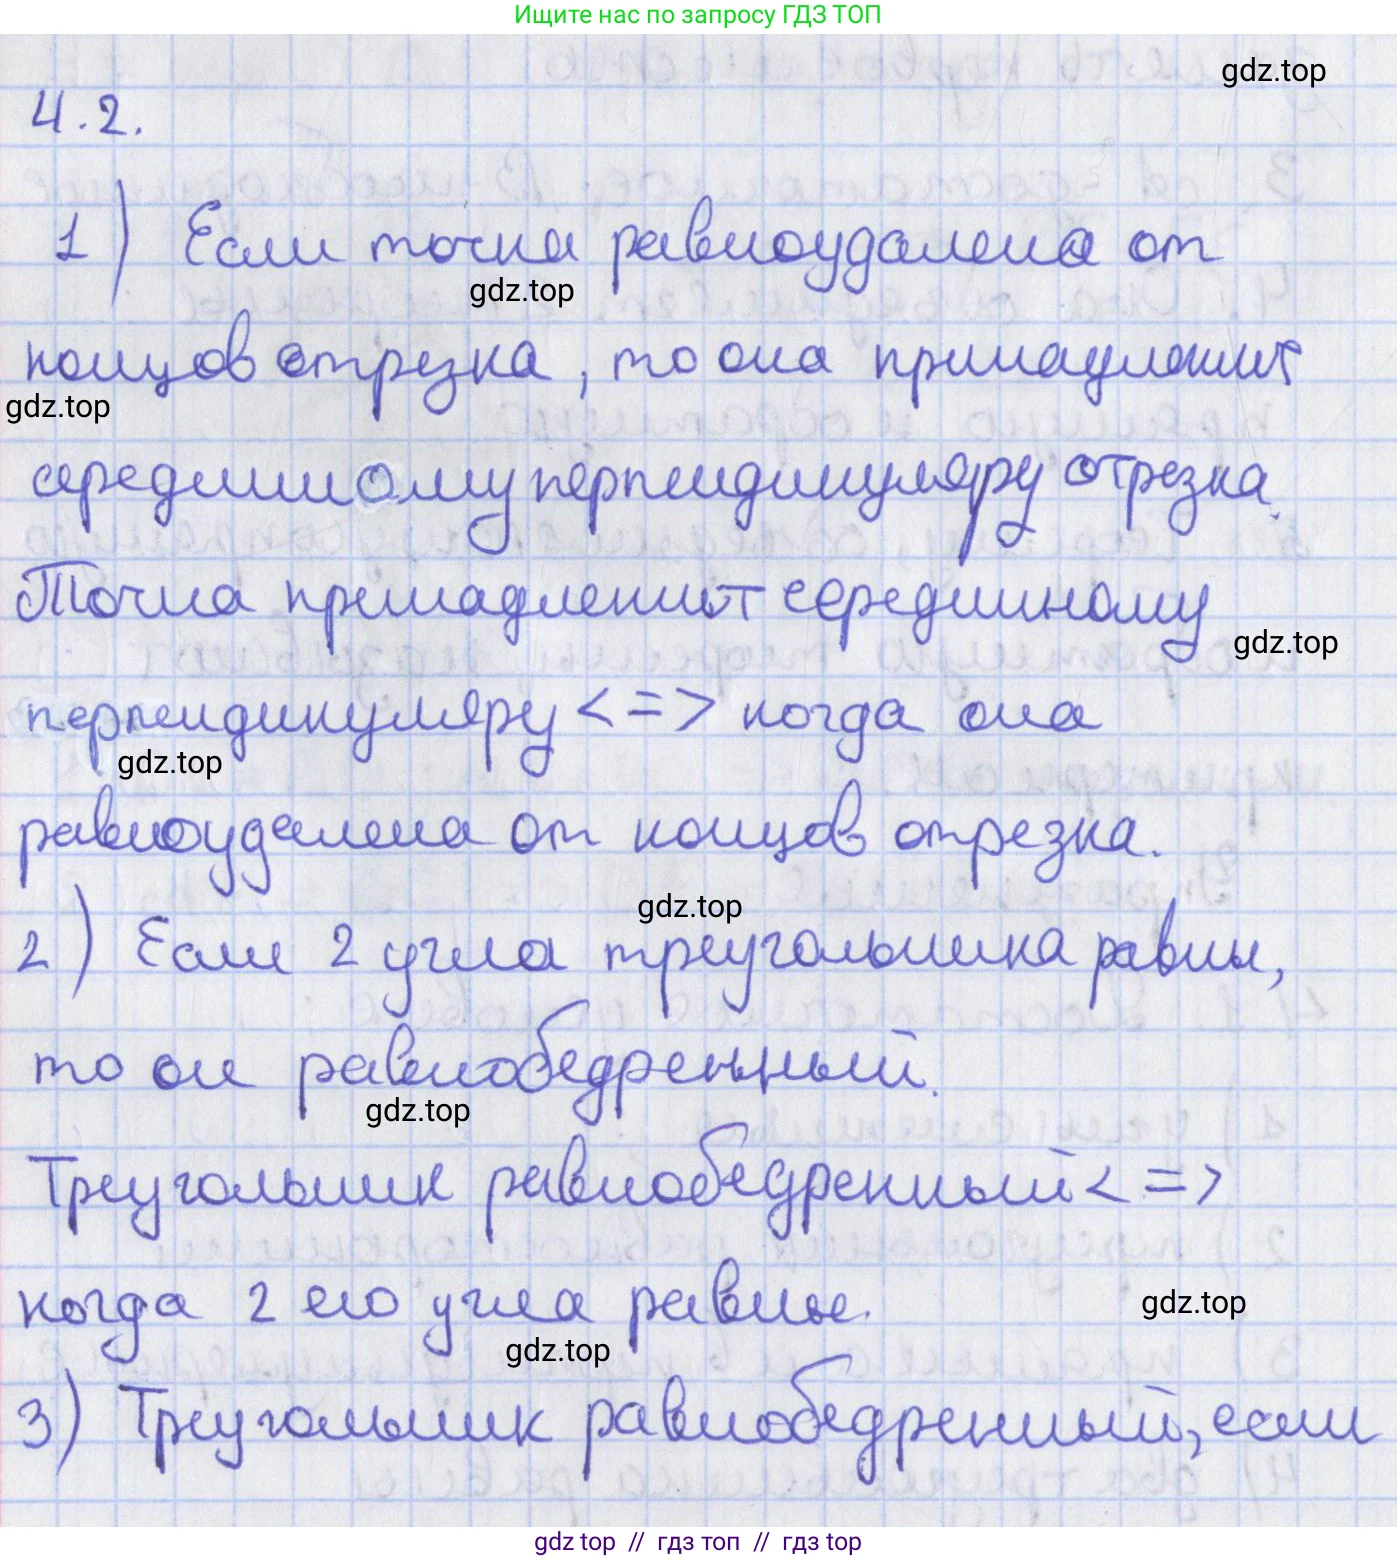 Ищите нас по запросу ГДЗ ТОП
gdz.top
4.2.
1) Если точка равноудалена от
gdz.top
концов отрезка, то она принадлежит
gdz.top
серединному перпендикуляру отрезка.
Точка принадлежит серединному
gdz.top
перпендикуляру <=> когда она
gdz.top
равноудалена от концов отрезка.
gdz.top
2) Если 2 угла треугольника равны,
то он равнобедренный.
gdz.top
Треугольник равнобедренный <=>
когда 2 его угла равны.
gdz.top
gdz.top
3) Треугольник равнобедренный, если
gdz top // гдз топ // гдз top